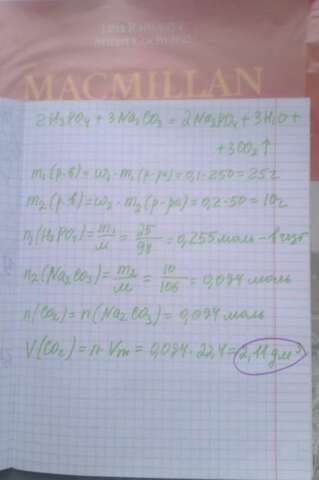 MACMILLAN
2H₃PO₄ + 3Na₂CO₃ = 2Na₃PO₄ + 3H₂O +
+ 3CO₂↑
m₁(р.в) = ω₁ · m₁(р-ра) = 0,1 · 250 = 25г
m₂(р.в) = ω₂ · m₂(р-ра) = 0,2 · 50 = 10г
n₁(H₃PO₄) = m₁/м = 25/98 = 0,255 моль - в изб
n₂(Na₂CO₃) = m₂/м = 10/106 = 0,094 моль
n(CO₂) = n(Na₂CO₃) = 0,094 моль
V(CO₂) = n · Vm = 0,094 · 22,4 = 2,11 дм³